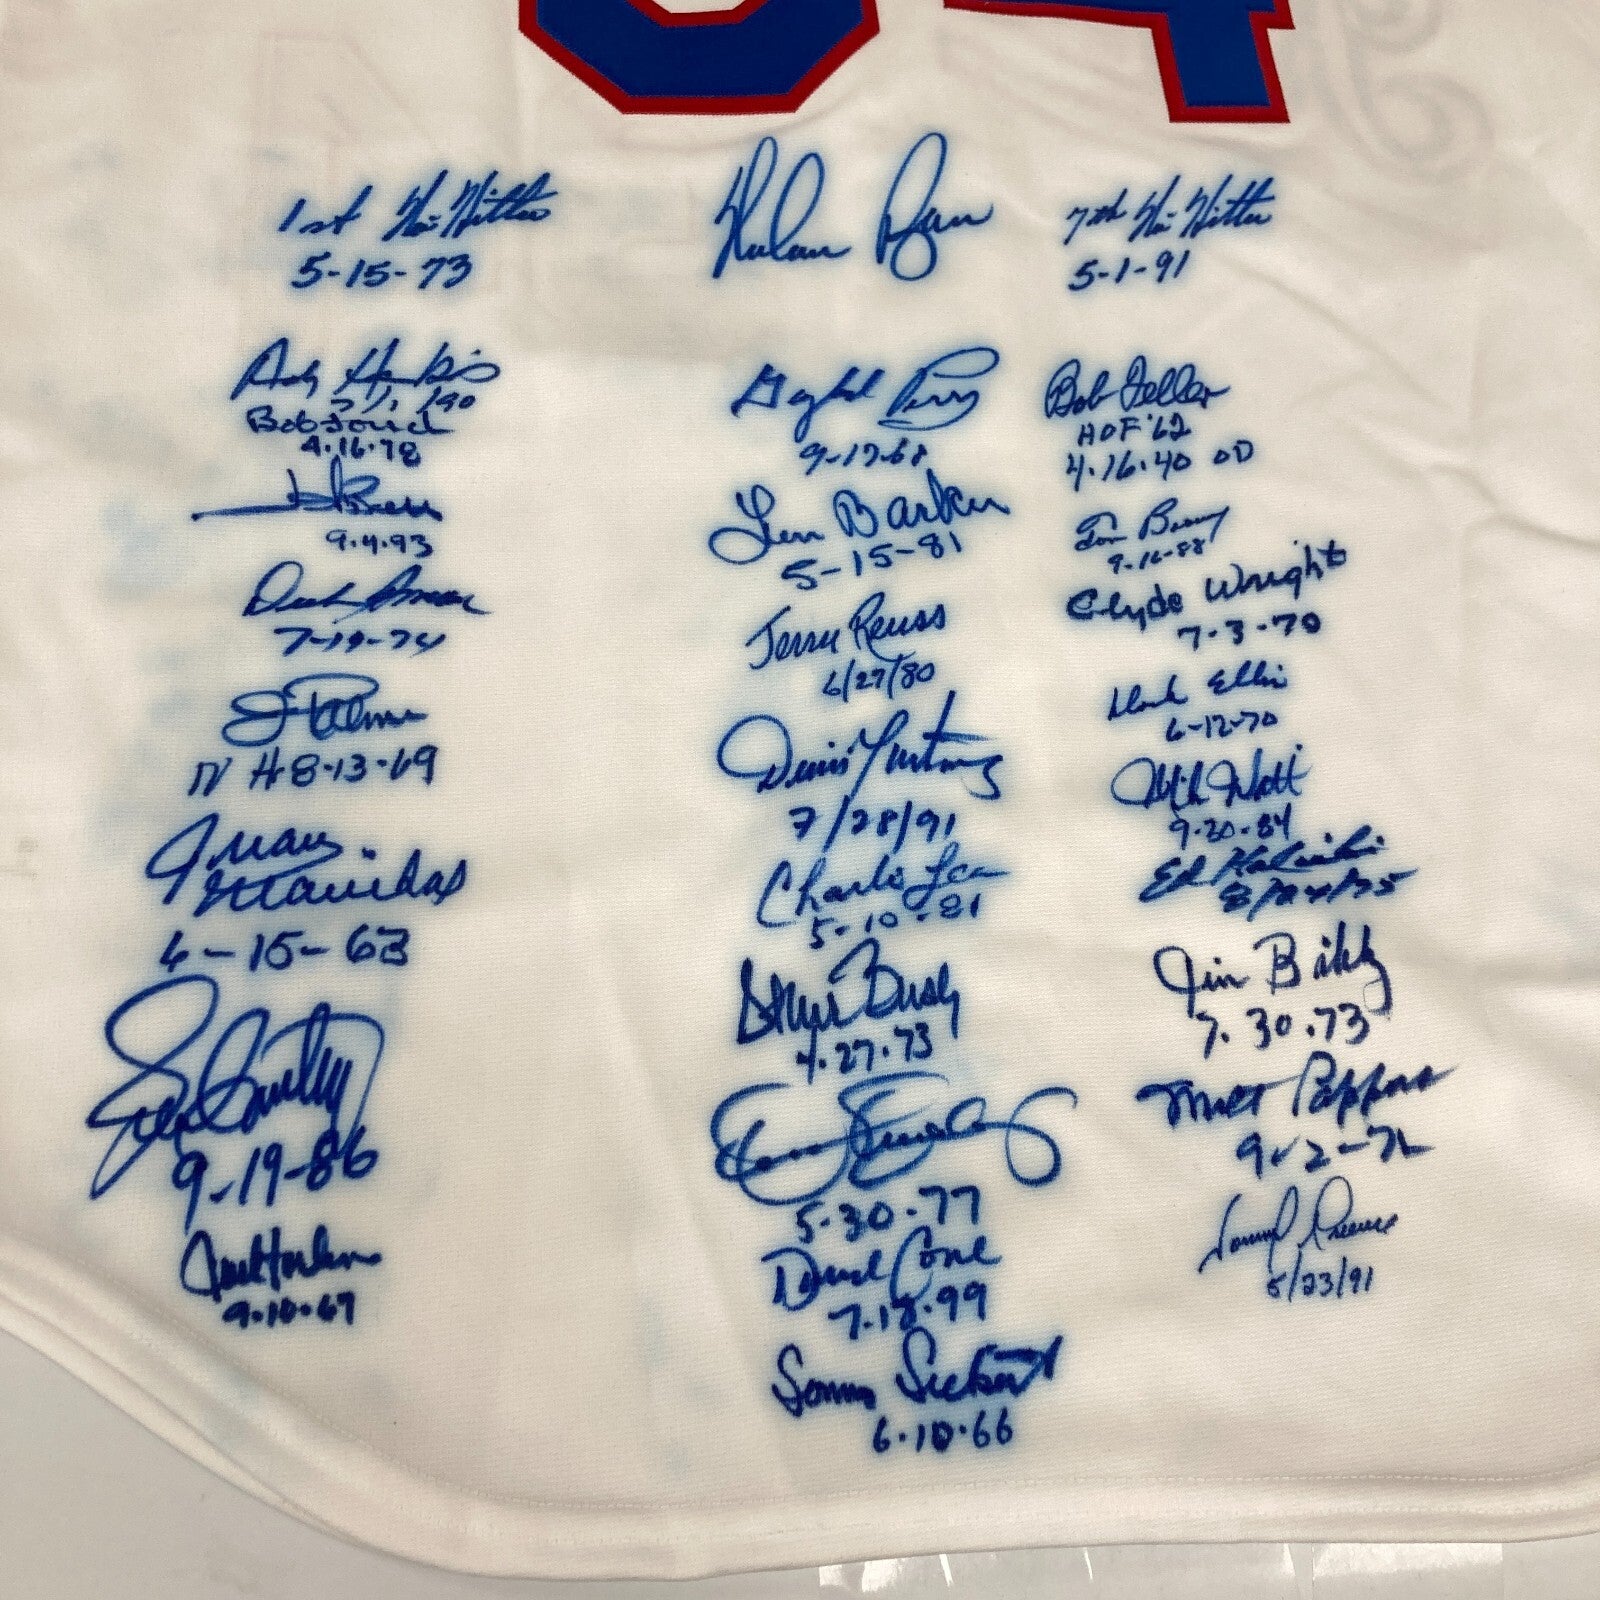 34
1st No Hitter
5-15-73
Nolan Ryan
7th No Hitter
5-1-91
Andy Hawkins
7/1/90
Bob Forsch
4.16.78
J Abbott
9.4.93
Dick Bosman
7-19-74
J. Palmer
N H 8-13-69
Juan
Marichal
6-15-63
9-19-86
Joel Horlen
9.10.67
Gaylord Perry
9-17-68
Len Barker
5-15-81
Jerry Reuss
6/27/80
Dennis Martinez
7/28/91
Charlie Lea
5-10-81
Steve Busby
4.27.73
Dennis Eckersley
5.30.77
David Cone
7.18.99
Sonny Siebert
6.10.66
Bob Feller
HOF '62
4.16.40 OD
Tom Browning
9-16-88
Clyde Wright
7.3.70
Dock Ellis
6-12-70
Mike Witt
9.30.84
Ed Halicki
8/24/75
Jim Bibby
7.30.73
Milt Pappas
9-2-72
Tommy Greene
5/23/91